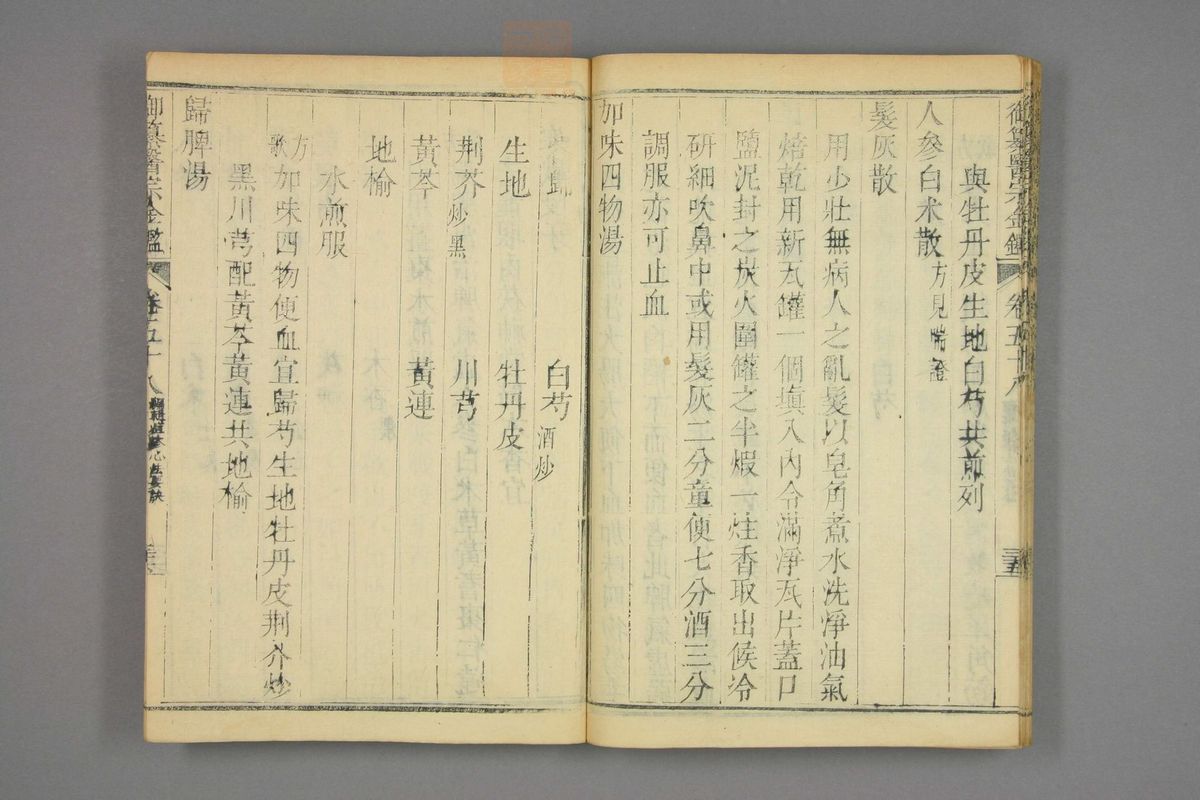 御纂醫宗金鑑 卷五十八 三五
與牡丹皮生地白芍共煎列
人參白朮散 方見喘證
髮灰散
用少壯無病人之亂髮以皂角煮水洗淨油氣
焙乾用新瓦罐一個填入內令滿淨瓦片蓋口
鹽泥封之炭火圍罐之半煅一炷香取出候冷
研細吹鼻中或用髮灰二分童便七分酒三分
調服亦可止血
加味四物湯
歸 白芍酒炒
生地 牡丹皮
荆芥炒黑 川芎
黃芩 黃連
地榆
水煎服
方歌加味四物便血宜歸芍生地牡丹皮荆芥炒
黑川芎配黃芩黃連共地榆
歸脾湯
御纂醫宗金鑑 卷五十八 雜病心法要訣